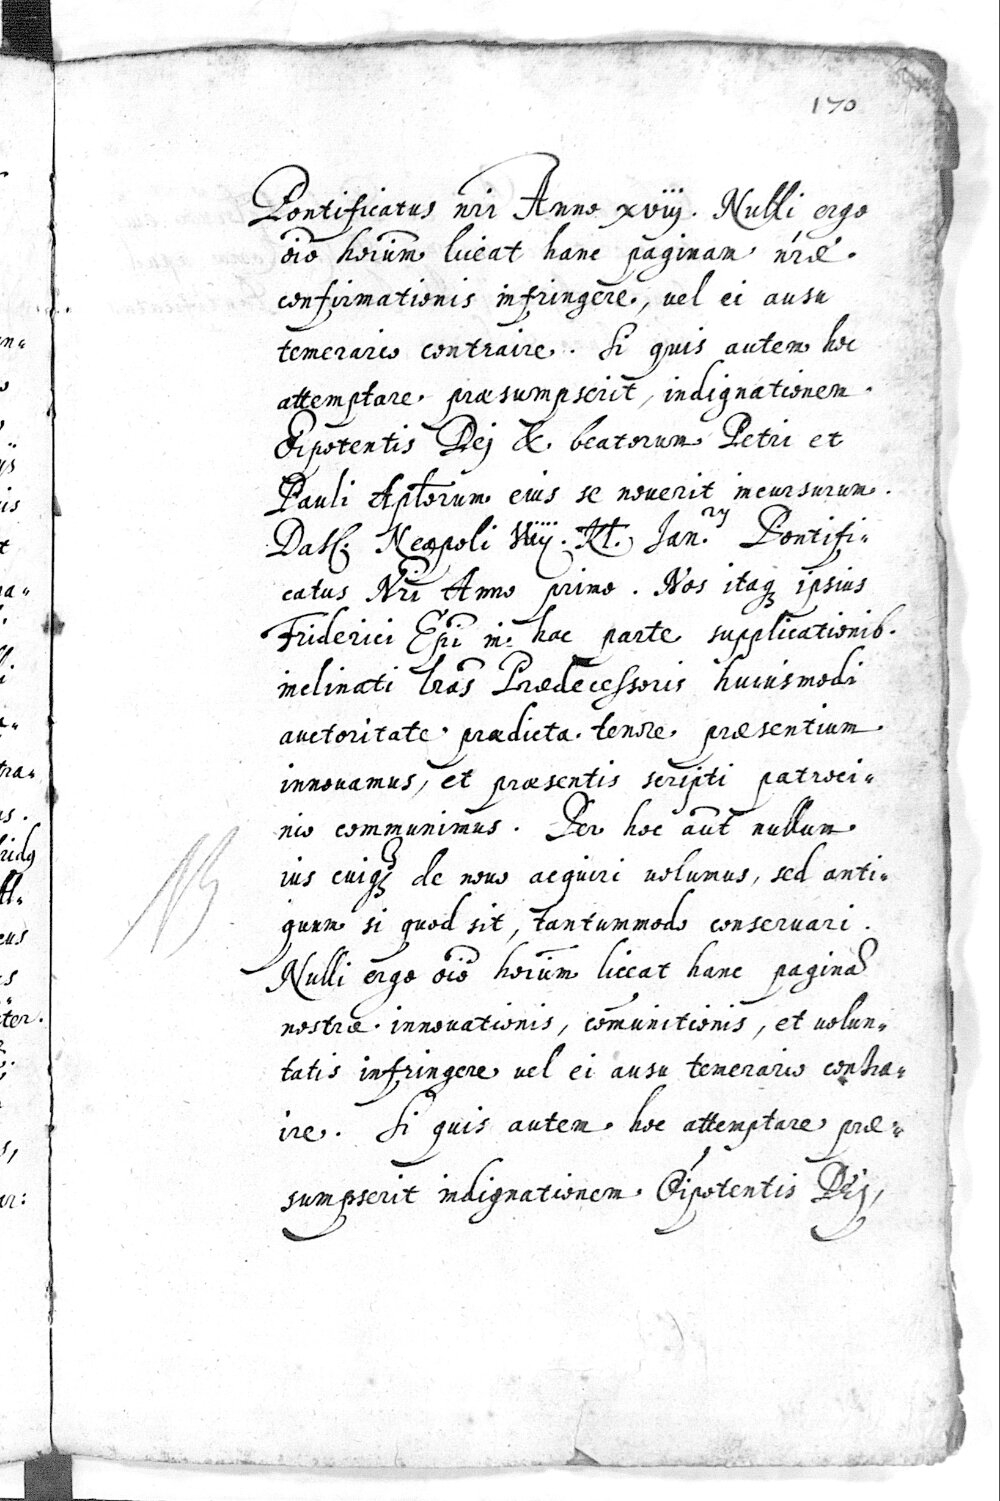 170
Pontificatus nri Anno xviij. Nulli ergo
oīo hoīum liceat hanc paginam nr̄æ
confirmationis infringere, vel ei ausu
temerario contraire. Si quis autem hoc
attemptare præsumpserit, indignationem
Oīpotentis Dej & beatorum Petri et
Pauli Aptorum eius se noverit incursurum.
Dat. Neapoli Kl. Jan.ry Pontifi=
catus Nri Anno primo. Nos itaq ipsius
Friderici Epi in hac parte supplicationib.
inclinati lras Prædecessoris huiusmodi
auctoritate prædicta tenore præsentium
innovamus, et præsentis scripti patroci=
nio communimus. Per hoc aut nullum
ius cuiq de novo acquiri volumus, sed anti=
quum si quod sit, tantummodo conservari.
NB
Nulli ergo oīo hoīum liceat hanc pagina
nostræ innovationis, comunitionis, et volun=
tatis infringere vel ei ausu temerario contra=
ire. Si quis autem hoc attemptare præ=
sumpserit indignationem Oīpotentis Dej,